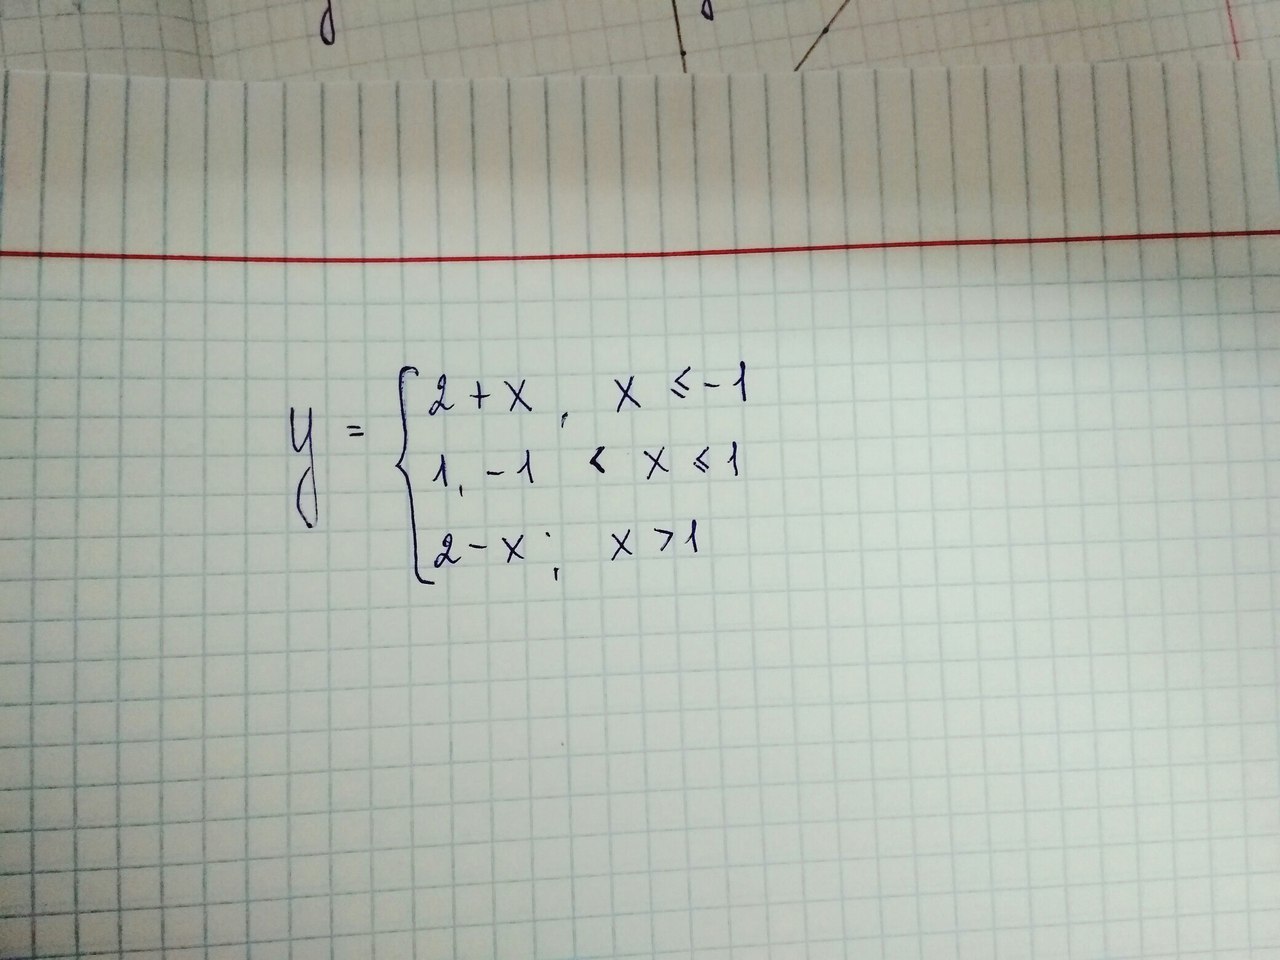 y = { 2 + x , x ⩽ -1
1, -1 < x ⩽ 1
2 - x ; x > 1